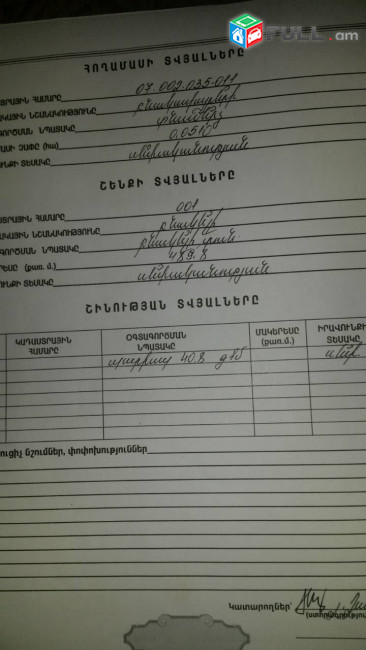 FULL.am
ՀՈՂԱՄԱՍԻ ՏՎՅԱԼՆԵՐԸ
ՏՐԱՅԻՆ ՀԱՄԱՐԸ 07-002-035-011
ԿԱՅԻՆ ՆՇԱՆԱԿՈՒԹՅՈՒՆԸ բնակավայրերի
ԳՈՐԾՄԱՆ ՆՊԱՏԱԿԸ տնամերձ
ՄԱՍԻ ՉԱՓԸ (հա) 0.0510
ՈՒՆՔԻ ՏԵՍԱԿԸ սեփականություն
ՇԵՆՔԻ ՏՎՅԱԼՆԵՐԸ
ՍՏՐԱՅԻՆ ՀԱՄԱՐԸ 001
ԿԱՅԻՆ ՆՇԱՆԱԿՈՒԹՅՈՒՆԸ բնակելի
ԳՈՐԾՄԱՆ ՆՊԱՏԱԿԸ բնակելի տուն
ԵՐԵՍԸ (քառ.մ.) 489.8
ՈՒՆՔԻ ՏԵՍԱԿԸ սեփականություն
ՇԻՆՈՒԹՅԱՆ ՏՎՅԱԼՆԵՐԸ
ԿԱԴԱՍՏՐԱՅԻՆ ՀԱՄԱՐԸ ՕԳՏԱԳՈՐԾՄԱՆ ՆՊԱՏԱԿԸ ՄԱԿԵՐԵՍԸ (քառ.մ.) ԻՐԱՎՈՒՆՔԻ ՏԵՍԱԿԸ
40.8 սեփ.
ուցիչ նշումներ, փոփոխություններ
Կատարողներ՝
(ստորագրությու